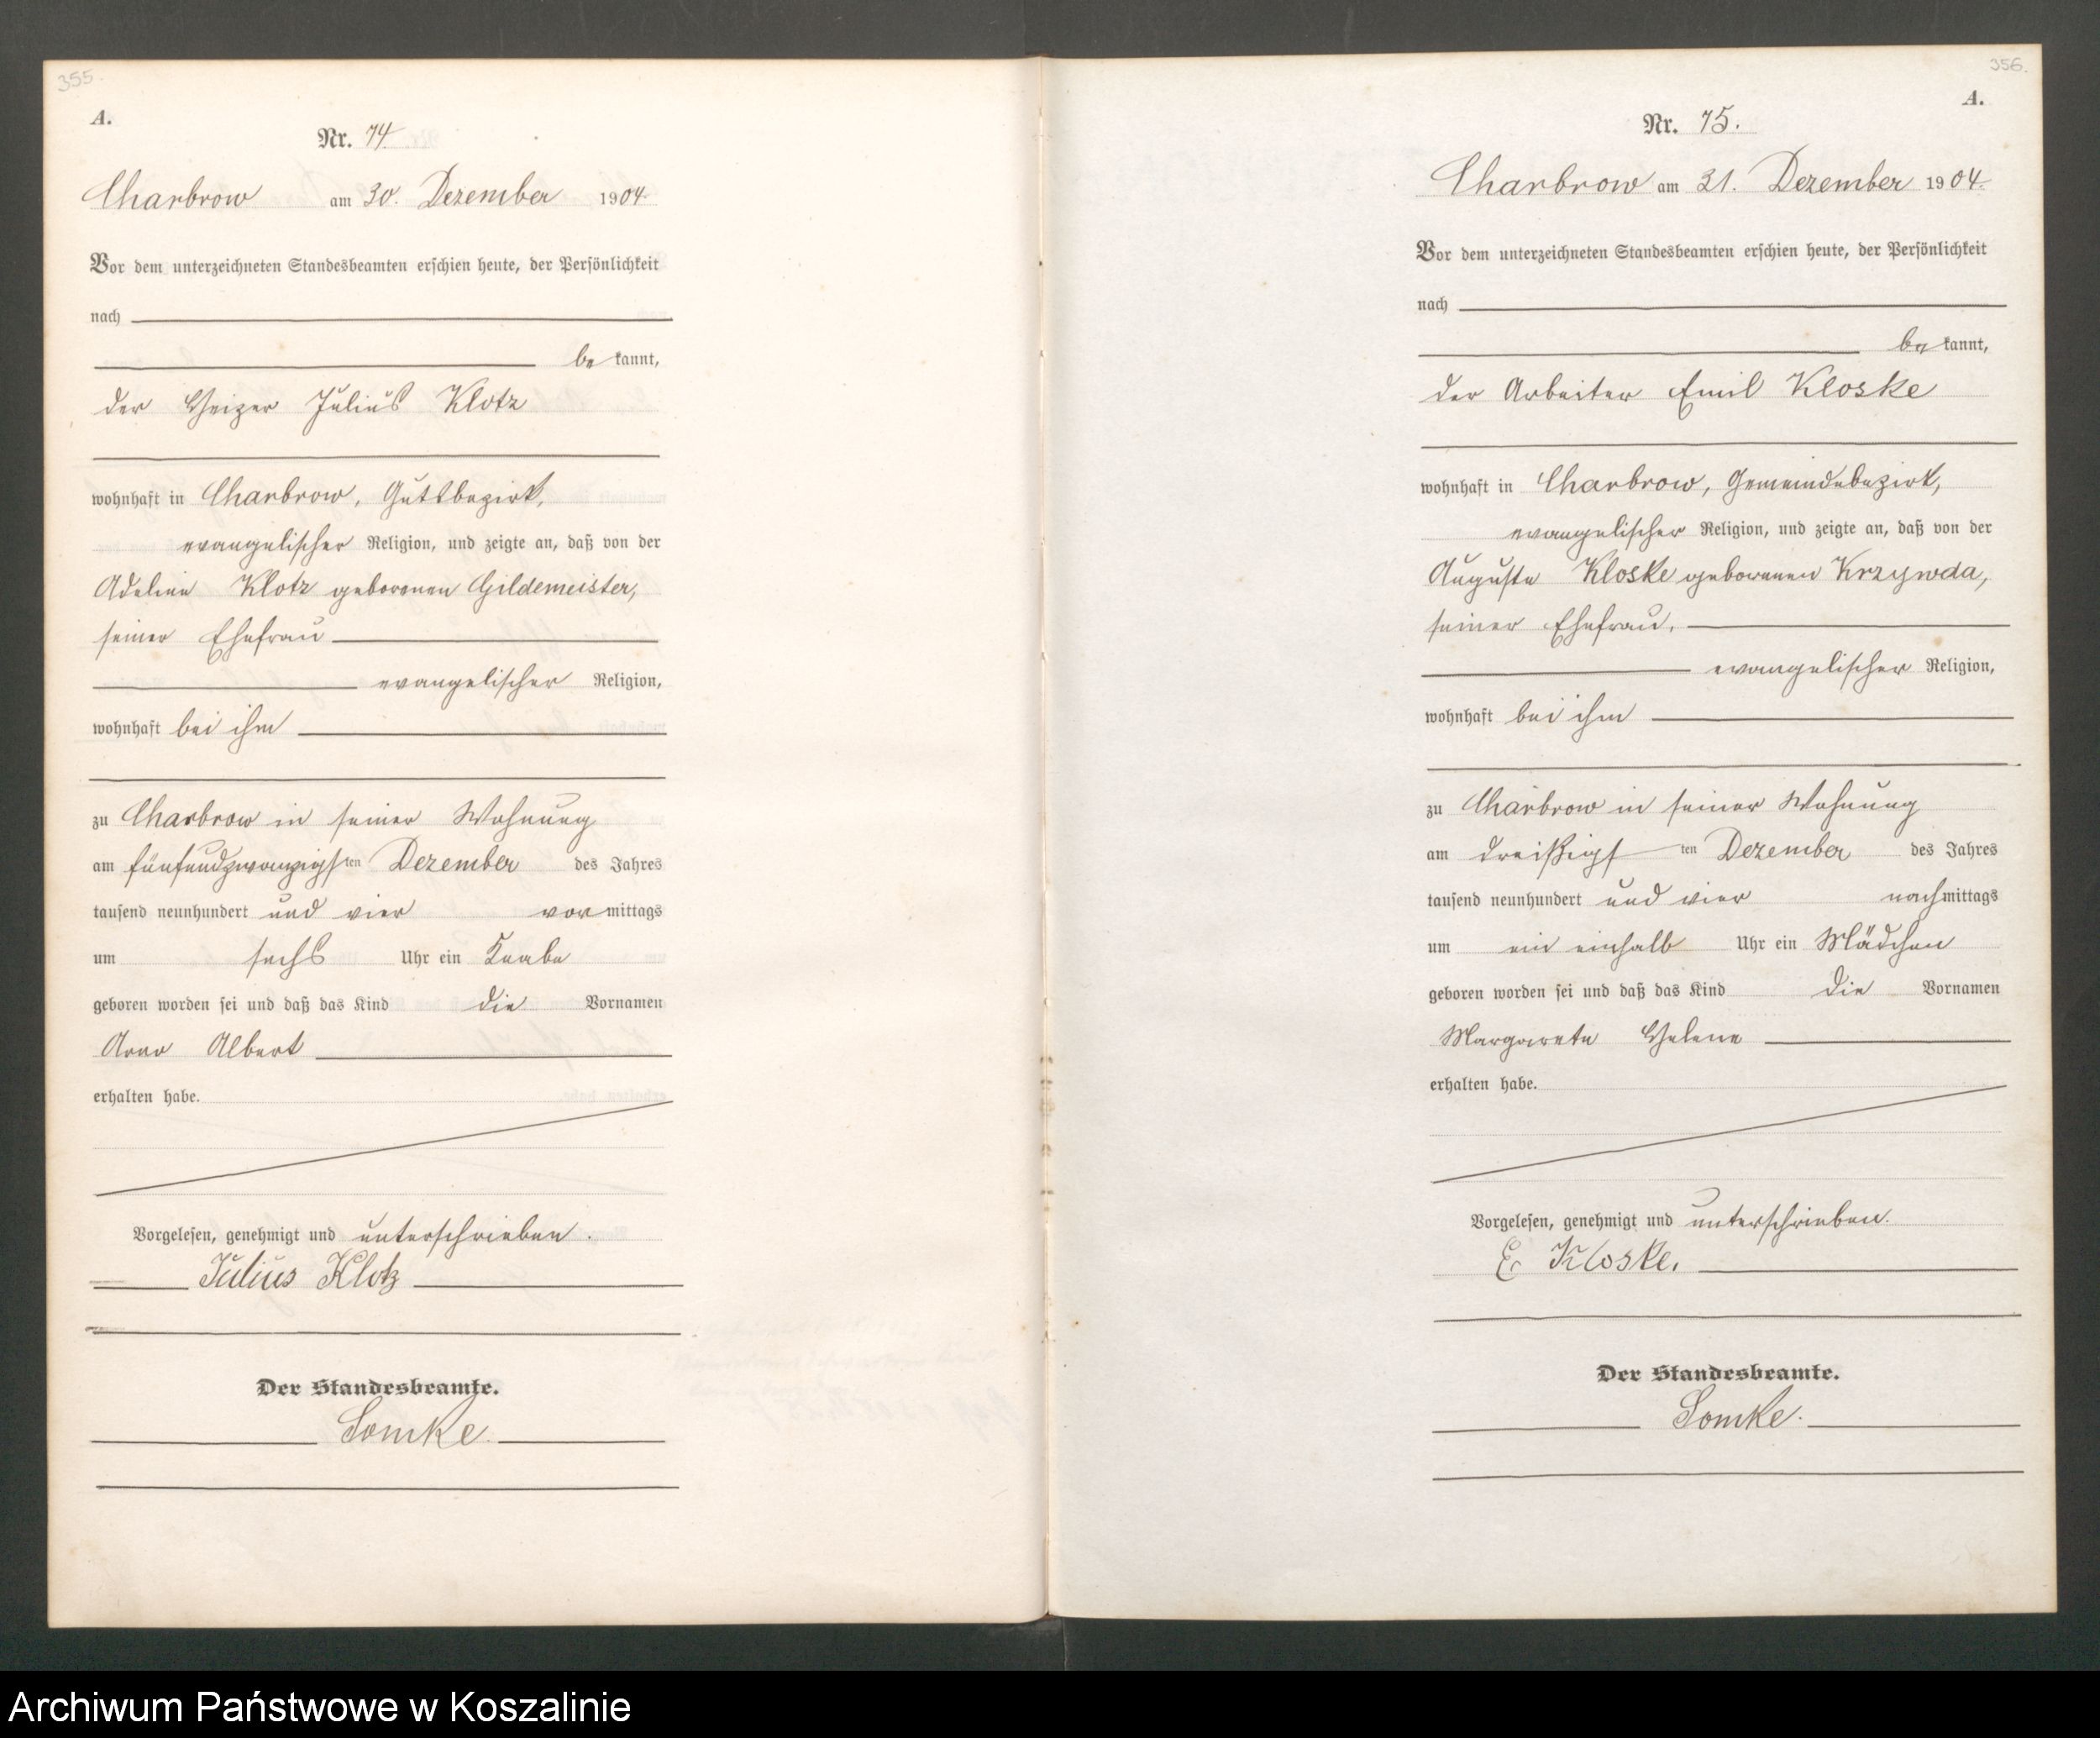 355.
A.
Nr. 74
Charbrow am 30. Dezember 1904.
Vor dem unterzeichneten Standesbeamten erschien heute, der Persönlichkeit
nach
be kannt,
der Heizer Julius Klotz
wohnhaft in Charbrow, Gutsbezirk,
evangelischer Religion, und zeigte an, daß von der
Adeline Klotz geborenen Gildemeister,
seiner Ehefrau
evangelischer Religion,
wohnhaft bei ihm
zu Charbrow in seiner Wohnung
am fünfundzwanzigsten Dezember des Jahres
tausend neunhundert und vier vormittags
um sechs Uhr ein Knabe
geboren worden sei und daß das Kind die Vornamen
Arno Albert
erhalten habe.
Vorgelesen, genehmigt und unterschrieben.
Julius Klotz
Der Standesbeamte.
Somke.
356.
A.
Nr. 75.
Charbrow am 31. Dezember 1904.
Vor dem unterzeichneten Standesbeamten erschien heute, der Persönlichkeit
nach
be kannt,
der Arbeiter Emil Kloske
wohnhaft in Charbrow, Gemeindebezirk,
evangelischer Religion, und zeigte an, daß von der
Auguste Kloske geborenen Krzywda,
seiner Ehefrau,
evangelischer Religion,
wohnhaft bei ihm
zu Charbrow in seiner Wohnung
am dreißigsten Dezember des Jahres
tausend neunhundert und vier nachmittags
um ein einhalb Uhr ein Mädchen
geboren worden sei und daß das Kind die Vornamen
Margarete Helene
erhalten habe.
Vorgelesen, genehmigt und unterschrieben.
E. Kloske.
Der Standesbeamte.
Somke.
Archiwum Państwowe w Koszalinie